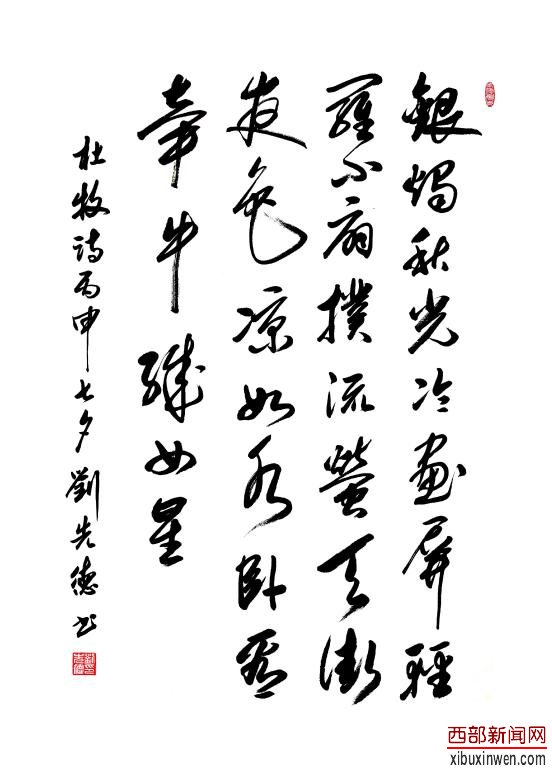 銀燭秋光冷畫屏輕
羅小扇撲流螢天街
夜色凉如水卧看
牽牛織女星
杜牧詩丙申七夕劉先德书
西部新闻网
xibuxinwen.com